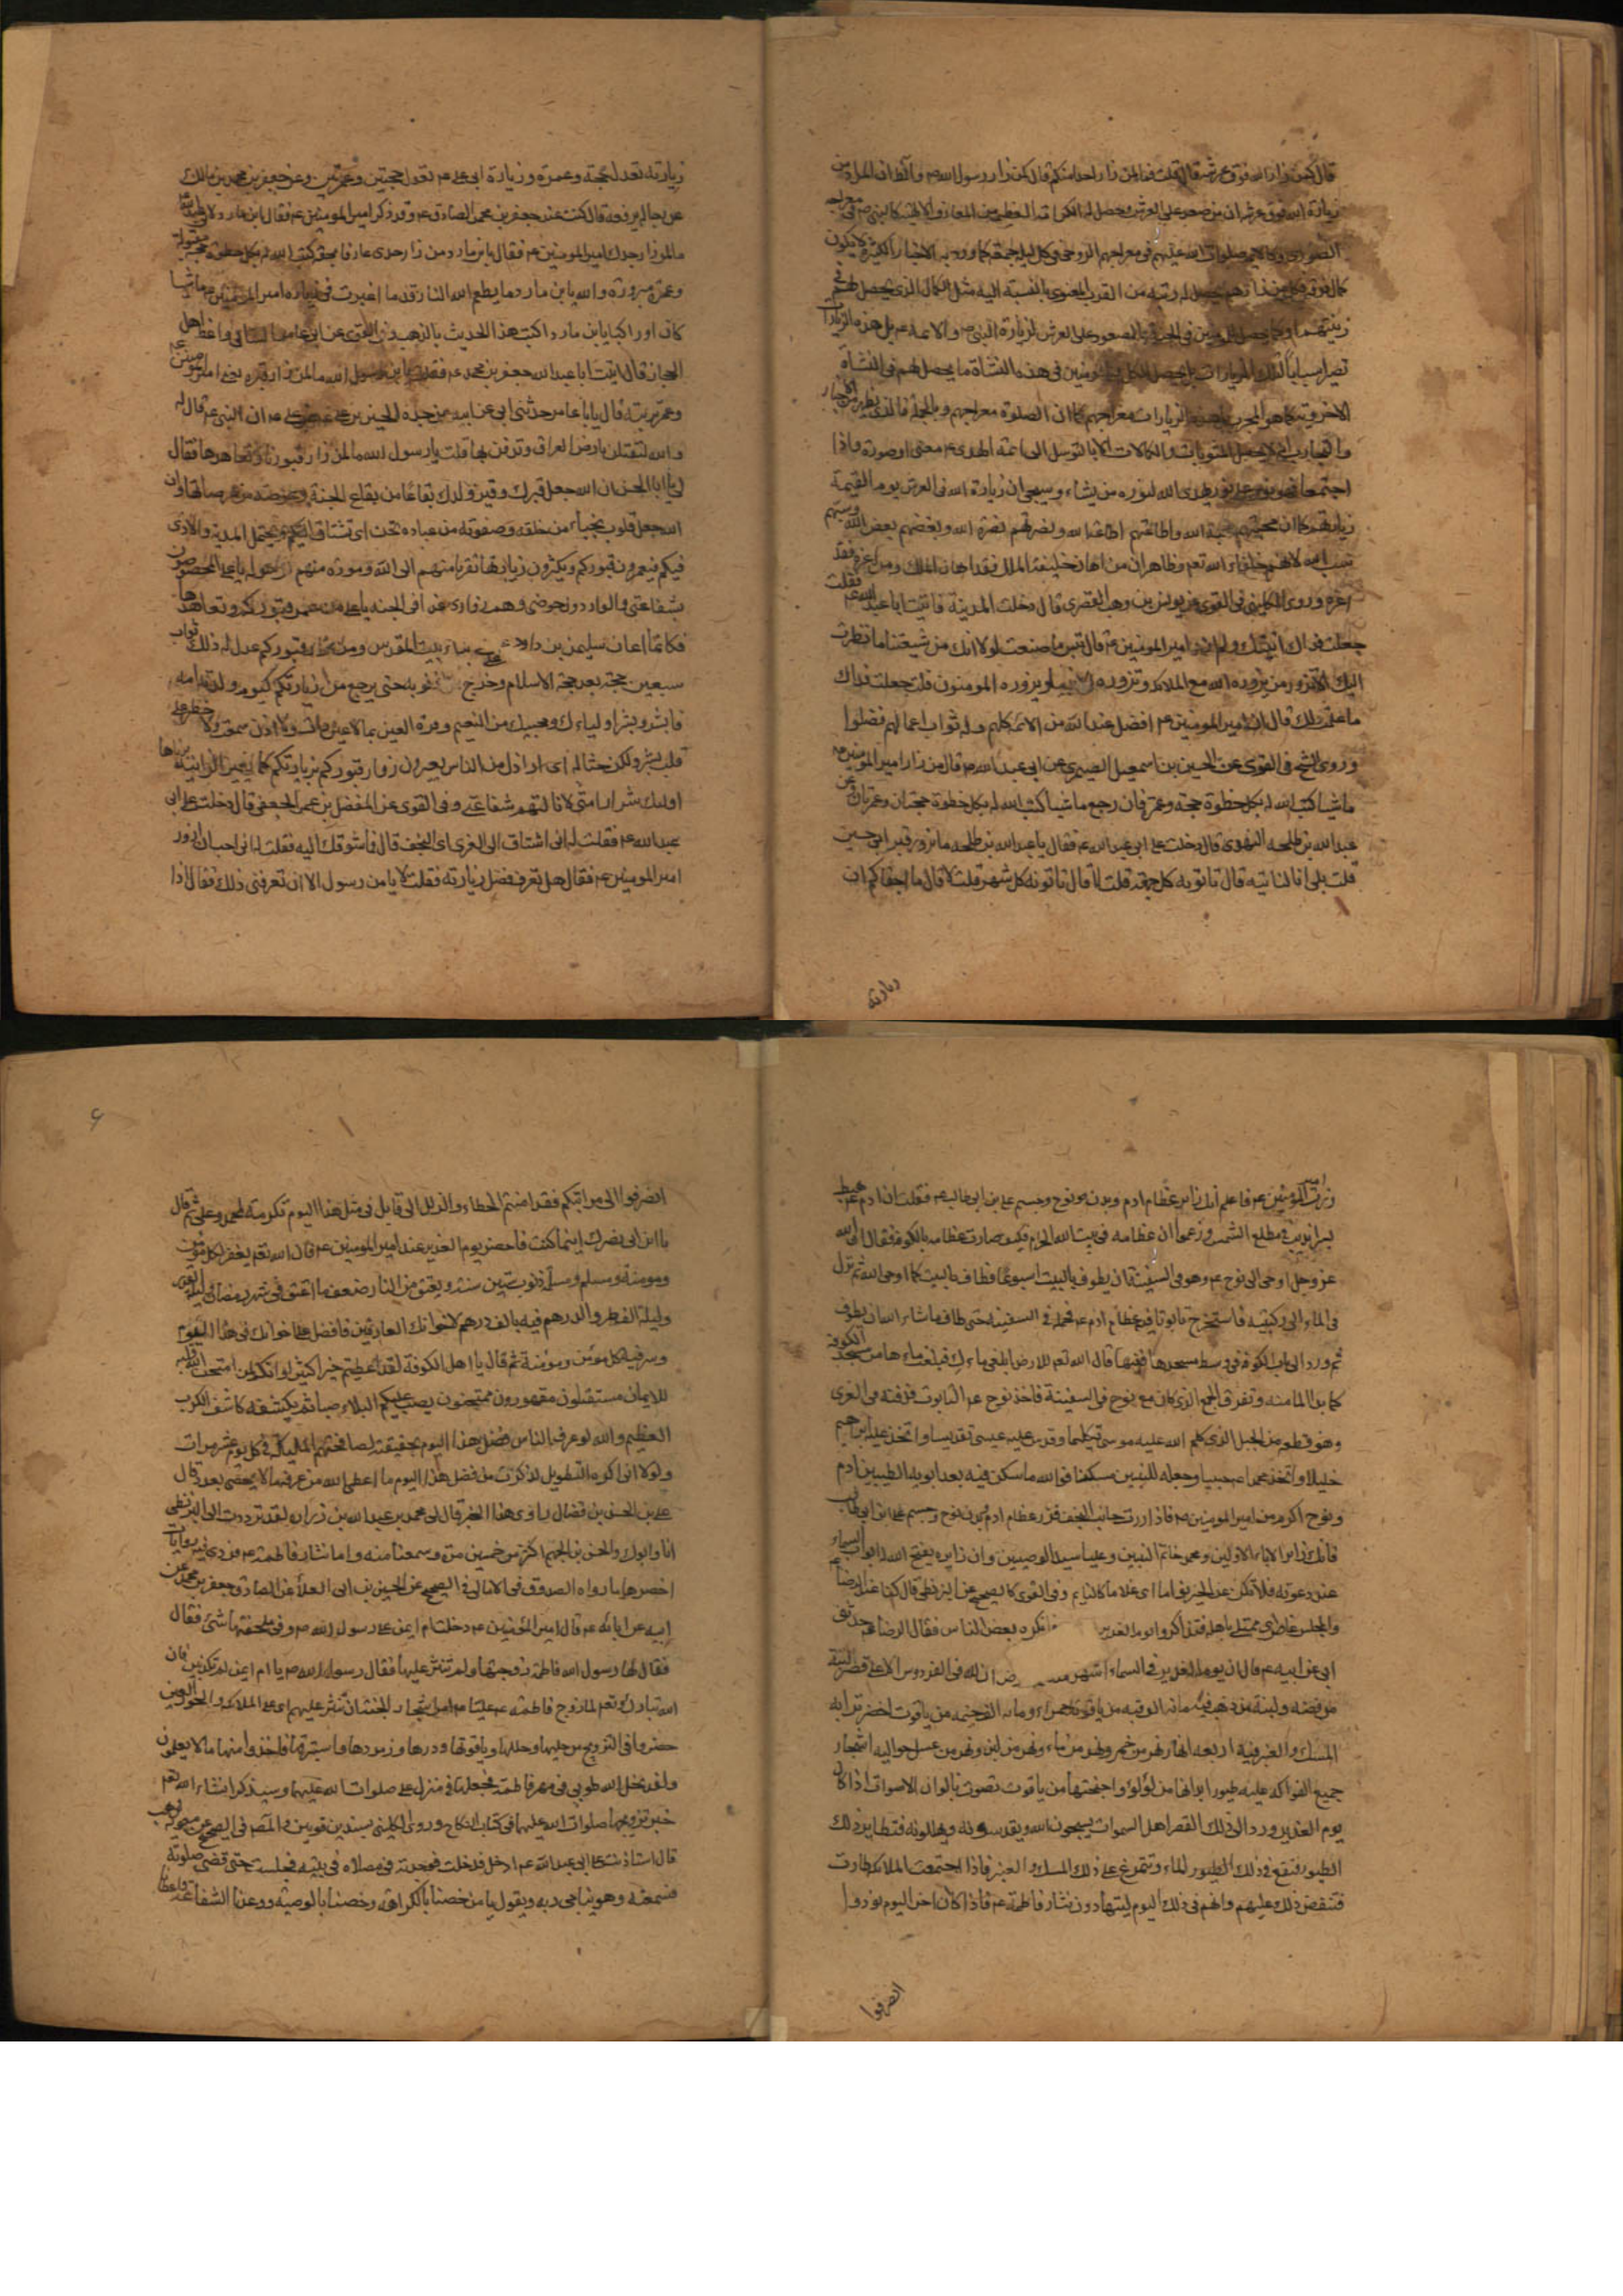 قال كمن زار الله فوق عرشه قال قلت فما لمن زار احدا منكم قال كمن زار رسول الله ص
زيارة الله فوق عرشه ان من صعد على العرش وحصل له
صلوات الله عليهم في معراجهم الروحي في كل ليلة جمعة كما ورد به الاخبار الكثيرة
من القرب المعنوي بالنسبة اليه مثل الكمال الذي يحصل لهم
بالصعود على العرش لزيارة النبي ص والائمة ع بل هذه الزيارات
في هذه النشاة ما يحصل لهم في النشاة
الزيارات معراجهم كما ان الصلوة معراجهم وبالجملة فالذي يظهر من الاخبار
والكمالات الا بالتوسل الى ائمة الهدى ع معنى او صورة واذا
اجتمعا فهو نور على نور يهدى الله لنوره من يشاء وسيجئ ان زيارة الله في العرش يوم القيمة
زيارتهم كما ان محبتهم محبة الله واطاعتهم اطاعة الله ونصرتهم نصرة الله وبغضهم بغض الله وسبهم
سب الله لانهم خلفاء الله تعم وظاهر ان من اهان خليفة الملك فقد اهان الملك ومن اعزه فقد
اعزه وروى الكليني في القوى عن يونس بن وهب القصرى قال دخلت المدينة فاتيت ابا عبد الله ع فقلت
جعلت فداك اتيتك ولم ازر امير المومنين ع قال بئس ما صنعت لولا انك من شيعتنا ما نظرت
اليك الا تزور من يزوره الله مع الملائكة وتزوره الانبياء ويزوره المومنون قلت جعلت فداك
ما علمت ذلك قال ان امير المومنين ع افضل عند الله من الائمة كلهم وله ثواب اعمالهم فضلوا
وروى الشيخ في القوى عن الحسين بن اسمعيل الصيمرى عن ابي عبد الله ع قال من زار امير المومنين ع
ماشيا كتب الله له بكل خطوة حجة وعمرة فان رجع ماشيا كتب الله له بكل خطوة حجتان وعمرتان وعن
عبد الله بن طلحه النهدى قال دخلت على ابي عبد الله ع فقال يا عبد الله بن طلحه ما تزور قبر ابي حسين
قلت بلى انا لناتيه قال تاتونه كل جمعة قلت لا قال تاتونه كل شهر قلت لا قال ما اجفاكم ان
زيارته
زيارته تعدل حجة وعمرة وزيارة ابي علي ع تعدل حجتين وعمرتين وعن جعفر بن محمد بن مالك
عن رجاله يرفعه قال كنت عند جعفر بن محمد الصادق ع وقد ذكر امير المومنين ع فقال ابن مارد لابي عبد الله
ما لمن زار جدك امير المومنين ع فقال يابن مارد من زار جدى عارفا بحقه كتب الله له بكل خطوة حجة مقبولة
وعمرة مبرورة والله يابن مارد ما يطعم الله النار قدما اغبرت في زيارة امير المومنين ع ماشيا
كان او راكبا يابن مارد اكتب هذا الحديث بالذهب وفي القوى عن ابي عامر واعظ اهل
الحجاز قال اتيت ابا عبد الله جعفر بن محمد ع فقلت يابن رسول الله ما لمن زار قبره يعني امير المومنين ع
وعمر تربته قال يابا عامر حدثني ابي عن ابيه عن جده الحسين بن علي عن علي ع ان النبي ص قال له
والله لتقتلن بارض العراق وتدفن بها قلت يا رسول الله ما لمن زار قبورنا وعمرها وتعاهدها فقال
لي يا ابا الحسن ان الله جعل قبرك وقبر ولدك بقاعا من بقاع الجنة وعرصة من عرصاتها وان
الله جعل قلوب نجباء من خلقه وصفوته من عباده تحن اى تشتاق اليكم وتحتمل المذلة والاذى
فيكم فيعمرون قبوركم ويكثرون زيارتها تقربا منهم الى الله ومودة منهم لرسوله يا علي المخصوصون
بشفاعتى والواردون حوضى وهم زوارى غدا في الجنة يا علي من عمر قبوركم وتعاهدها
فكانما اعان سليمن بن داود ع على بناء بيت المقدس ومن زار قبوركم عدل له ذلك ثواب
سبعين حجة بعد حجة الاسلام وخرج من ذنوبه حتى يرجع من زيارتكم كيوم ولدته امه
فابشر وبشر اولياءك ومحبيك من النعيم وقرة العين بما لا عين رات ولا اذن سمعت ولا خطر على
قلب بشر ولكن حثالة اى اراذل من الناس يعيرون زوار قبوركم بزيارتكم كما تعير الزانية بزناها
اولئك شرار امتى لا نالتهم شفاعتى وفي القوى عن المفضل بن عمر الجعفى قال دخلت على ابي
عبد الله ع فقلت له اني اشتاق الى الغرى اى النجف قال فما شوقك اليه فقلت له انى احب ان ازور
امير المومنين ع فقال هل تعرف فضل زيارته فقلت لا يابن رسول الله الا ان تعرفنى ذلك فقال اذا
زرت امير المومنين ع فاعلم انك زاير عظام ادم وبدن نوح وجسم علي بن ابي طالب ع فقلت ان ادم ع هبط
بسرانديب في مطلع الشمس وزعموا ان عظامه في بيت الله الحرام فكيف صارت عظامه بالكوفة فقال ان الله
عز وجل اوحى الى نوح ع وهو في السفينة ان يطوف بالبيت اسبوعا فطاف بالبيت كما اوحى الله ثم نزل
في الماء الى ركبتيه فاستخرج تابوتا فيه عظام ادم ع فحمله في السفينة حتى طاف ما شاء الله ان يطوف
ثم ورد الى باب الكوفة في وسط مسجدها ففيها قال الله تعم للارض ابلعى ماءك فبلعت ماءها من مسجد الكوفة
كما بدا الماء منه وتفرق الجمع الذي كان مع نوح في السفينة فاخذ نوح ع التابوت فدفنه في الغرى
وهو قطعة من الجبل الذي كلم الله عليه موسى تكليما وقدس عليه عيسى تقديسا واتخذ عليه ابراهيم
خليلا واتخذ محمدا ص حبيبا وجعله للنبيين مسكنا فوالله ما سكن فيه بعد ابويه الطيبين ادم
ونوح اكرم من امير المومنين ع فاذا زرت جانب النجف فزر عظام ادم وبدن نوح وجسم علي بن ابي طالب
فانك زاير الاباء الاولين ومحمد خاتم النبيين وعليا سيد الوصيين وان زايره يفتح الله له ابواب السماء
عند دعوته فلا تكن عن الخير نواما وفي القوى كالصحيح عن البزنطى قال كنا عند الرضا ع
والمجلس غاص باهله فتذاكروا يوم الغدير فانكره بعض الناس فقال الرضا ع حدثنى
ابي عن ابيه ع قال ان يوم الغدير في السماء اشهر ان لله في الفردوس الاعلى قصرا لبنة
من فضة ولبنة من ذهب فيه مائة الف قبة من ياقوتة حمراء ومائة الف خيمة من ياقوت اخضر ترابه
المسك والعنبر فيه اربعة انهار نهر من خمر ونهر من ماء ونهر من لبن ونهر من عسل حواليه اشجار
جميع الفواكه عليه طيور ابدانها من لؤلؤ واجنحتها من ياقوت تصوت بالوان الاصوات اذا كان
يوم الغدير ورد الى ذلك القصر اهل السموات يسبحون الله ويقدسونه ويهللونه فتطاير ذلك
الطيور فتقع في ذلك الماء وتتمرغ على ذلك المسك والعنبر فاذا اجتمعت الملائكة طارت
فتنفض ذلك عليهم وانهم في ذلك اليوم ليتهادون نثار فاطمة ع فاذا كان اخر اليوم نودوا
انصرفوا
۶
انصرفوا الى مراتبكم فقد امنتم الخطاء والزلل الى قابل في مثل هذا اليوم تكرمة لمحمد وعلي ثم قال
يا ابن ابي نصر اينما كنت فاحضر يوم الغدير عند امير المومنين ع فان الله تعم يغفر لكل مومن
ومومنة ومسلم ومسلمة ذنوب ستين سنة ويعتق من النار ضعف ما اعتق في شهر رمضان وليلة القدر
وليلة الفطر والدرهم فيه بالف درهم لاخوانك العارفين فافضل على اخوانك في هذا اليوم
وسر فيه كل مؤمن ومؤمنة ثم قال يا اهل الكوفة لقد اعطيتم خيرا كثيرا وانكم لمن امتحن الله قلبه
للايمان مستقلون مقهورون ممتحنون يصب عليكم البلاء صبا ثم يكشفه كاشف الكرب
العظيم والله لو عرف الناس فضل هذا اليوم بحقيقته لصافحتهم الملائكة في كل يوم عشر مرات
ولولا انى اكره التطويل لذكرت من فضل هذا اليوم ما اعطى الله من عرفه ما لا يحصى بعدد قال
علي بن الحسن بن فضال راوى هذا الخبر قال لى محمد بن عبد الله بن زرارة لقد ترددت الى البزنطى
انا وابوك والحسن بن الجهم اكثر من خمسين مرة وسمعنا منه واما نثار فاطمة ع فروى فيه روايات
اخصرها ما رواه الصدوق في الامالى في الصحيح عن الحسين بن ابي العلاء عن الصادق جعفر بن محمد عن
ابيه عن ابائه ع قال امير المؤمنين ع دخلت ام ايمن على رسول الله ص وفي ملحفتها شئ فقال
فقال لها رسول الله فاطمة زوجتها ولم تنثر عليها فقال رسول الله ص يا ام ايمن لم تكذبين فان
الله تبارك وتعم لما زوج فاطمة ع عليا ع امر اشجار الجنة ان تنثر عليهم اى على الملائكة والحور العين
حضروا في التزويج من حليها وحللها وياقوتها ودرها وزمردها واستبرقها فاخذوا منها ما لا يعلمون
ولقد نحل الله طوبى في مهر فاطمة فجعلها في منزل علي صلوات الله عليهما وسيذكر انشاء الله تعم
خبر تزويجهما صلوات الله عليهما في كتاب النكاح وروى الكليني بسندين قويين والمصنف في الصحيح عن معوية بن وهب
قال استاذنت على ابي عبد الله ع ادخل فدخلت فوجدته في مصلاه في بيته فجلست حتى قضى صلوته
فسمعته وهو يناجى ربه ويقول يا من خصنا بالكرامة وخصنا بالوصية ووعدنا الشفاعة واعطانا